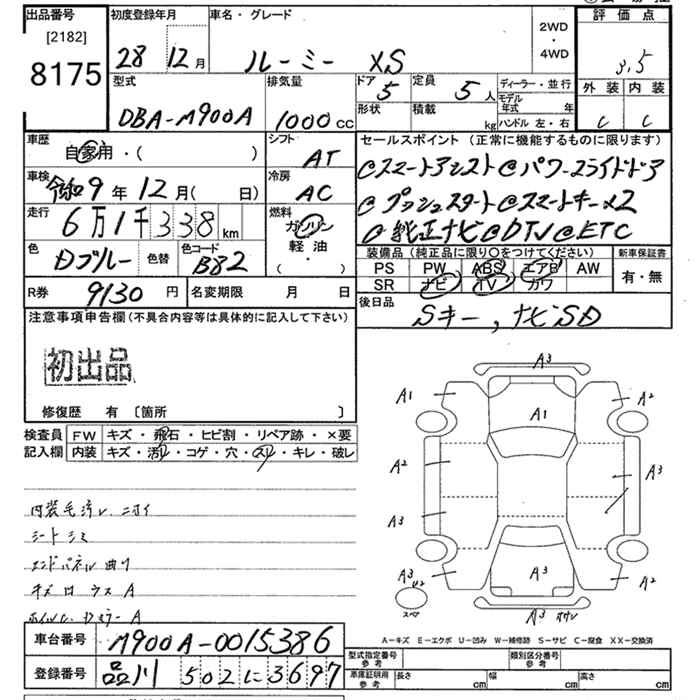 出品番号
[2182]
8175
初度登録年月
28 12月
車名・グレード
ルーミー XS
2WD
・
4WD
評価点
3.5
型式
DBA-M900A
排気量
1000 CC
ドア
5
定員
5人
形状
積載
kg
ディーラー・並行
モデル年式 年
ハンドル 左・右
外装
C
内装
C
車歴
自家用・( )
シフト
AT
セールスポイント (正常に機能するものに限ります)
@スマートアシスト@パワースライドドア
@プッシュスタート@スマートキー×2
@純正ナビ@DTV@ETC
車検
令和9年12月( 日)
冷房
AC
走行
6万1千338km
燃料
ガソリン
軽油
( ・ )
色
Dブルー
色替
色コード
B82
装備品 (純正品に限り○をつけてください)
新車保証書
PS PW ABS エアB AW
SR ナビ TV カワ
有・無
R券
9130円
名変期限 月 日
後日品
Sキー, ナビSD
注意事項申告欄 (不具合内容等は具体的に記入して下さい)
初出品
修復歴 有 〔箇所 〕
検査員
記入欄
FW キズ・飛石・ヒビ割・リペア跡・×要
内装 キズ・汚レ・コゲ・穴・スレ・キレ・破レ
内装毛汚レ ニホイ
シートシミ
エンドパネル曲り
キズ
A3
A1
A2
A1
A2
A3
A3
A3
A3 U2
スペア
A2
A3
A-キズ E-エクボ U-凹み W-補修跡 S-サビ C-腐食 XX-交換済
車台番号
M900A-0015386
登録番号
品川 502に3697
型式指定番号
参考
類別区分番号
参考
車庫証明用
参考
長さ cm
幅 cm
高さ cm